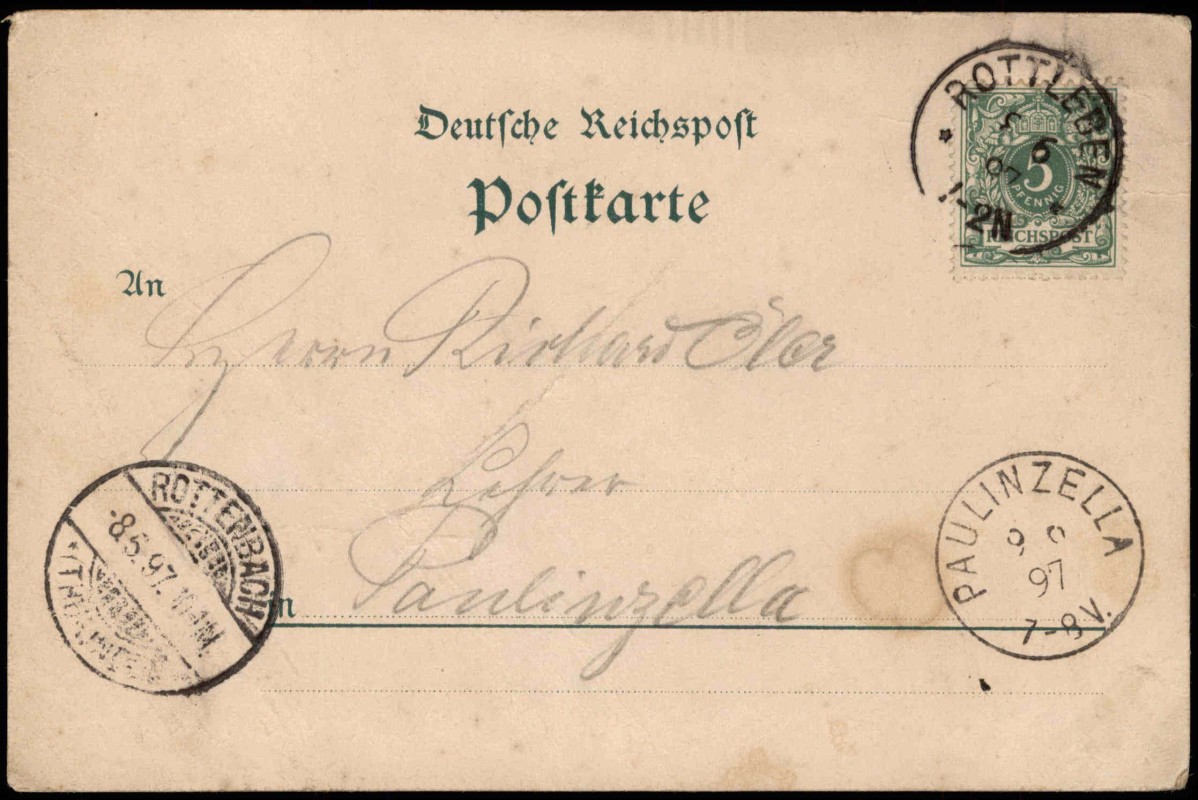 Deutsche Reichspost
Postkarte
ROTTLEBEN
6
97
1-2N
5
PFENNIG
REICHSPOST
An
Herrn Richard
Lehrer
in Paulinzella
ROTTENBACH
-8.5.97.
PAULINZELLA
97
7-8V.